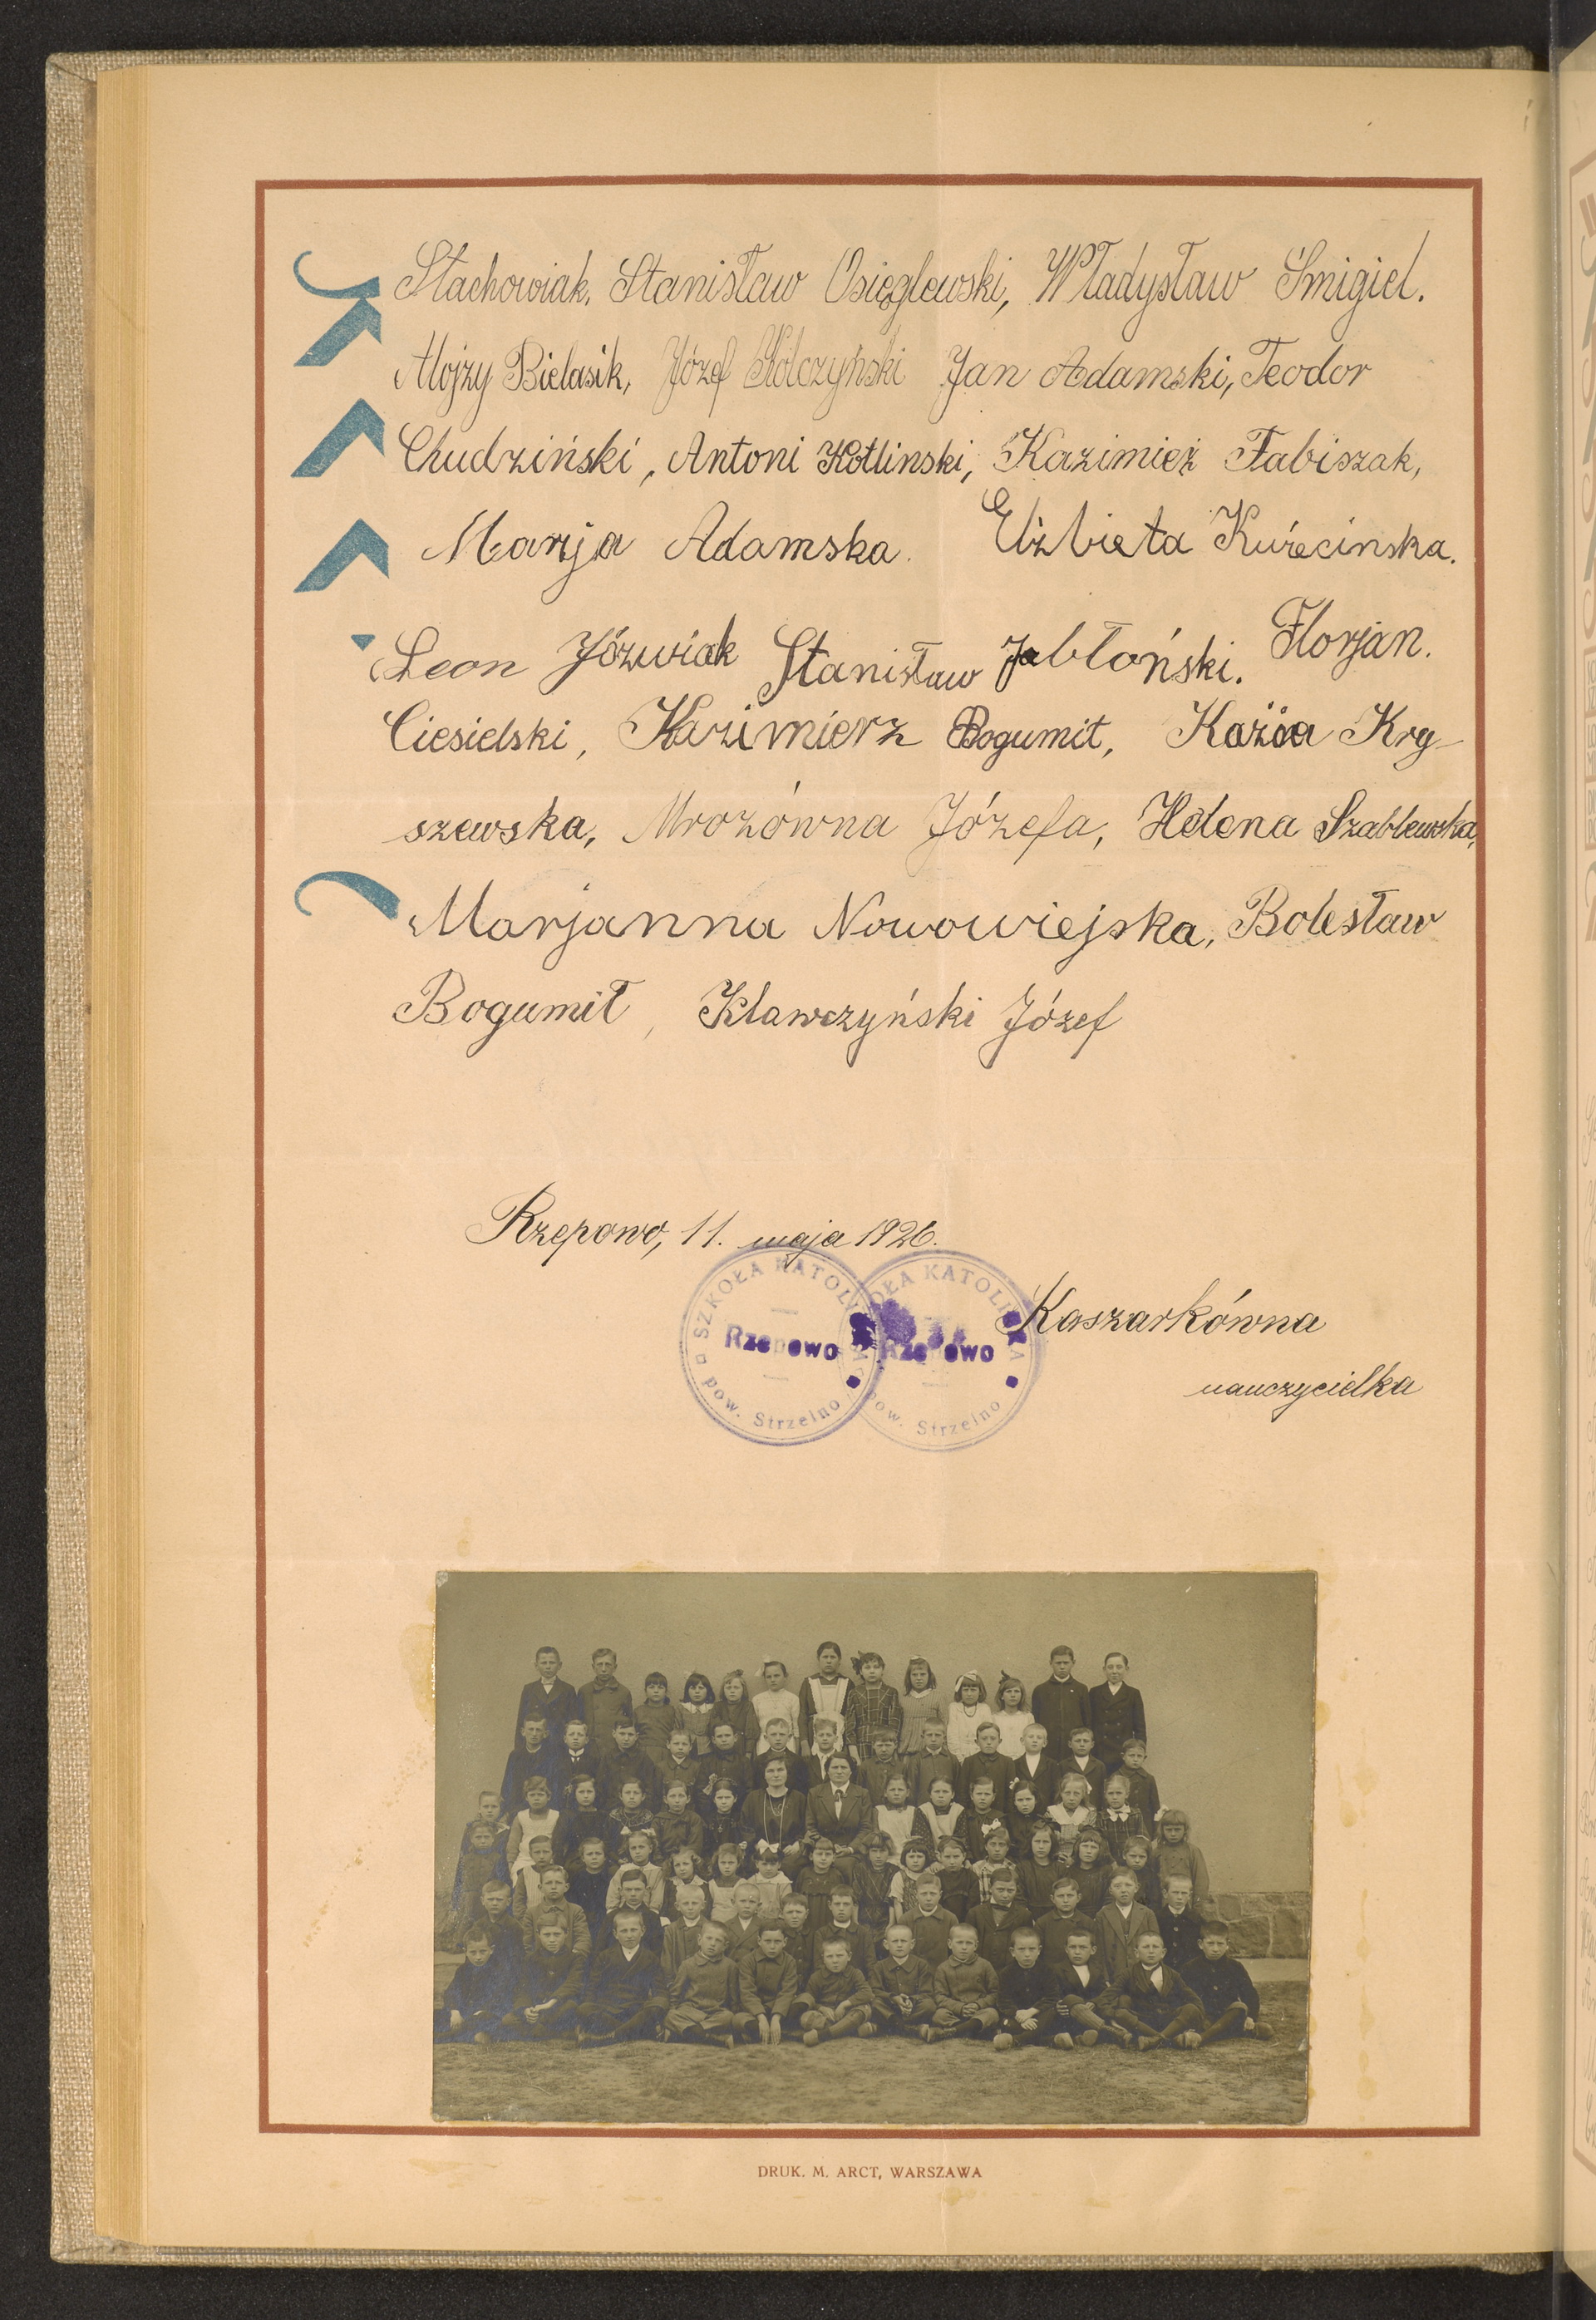 Stachowiak, Stanisław Osięglewski, Władysław Śmigiel.
Alojzy Bielasik, Józef Kólczyński Jan Adamski, Teodor
Chudziński, Antoni Kotlinski, Kazimież Fabiszak,
Marja Adamska. Elżbieta Kurécinska.
Leon Józwiak Stanisław Jabłoński. Florjan.
Ciesielski, Kazimierz Bogumit, Kazia Kry-
szewska, Mrozówna Józefa, Helena Szablewska,
Marjanna Nowowiejska, Bolesław
Bogumił, Klawczyński Józef
Rzepowo, 11. maja 1926.
SZKOŁA KATOLICKA
Rzepowo
pow. Strzelno
SZKOŁA KATOLICKA
Rzepowo
pow. Strzelno
Kaszarkówna
nauczycielka
DRUK. M. ARCT, WARSZAWA